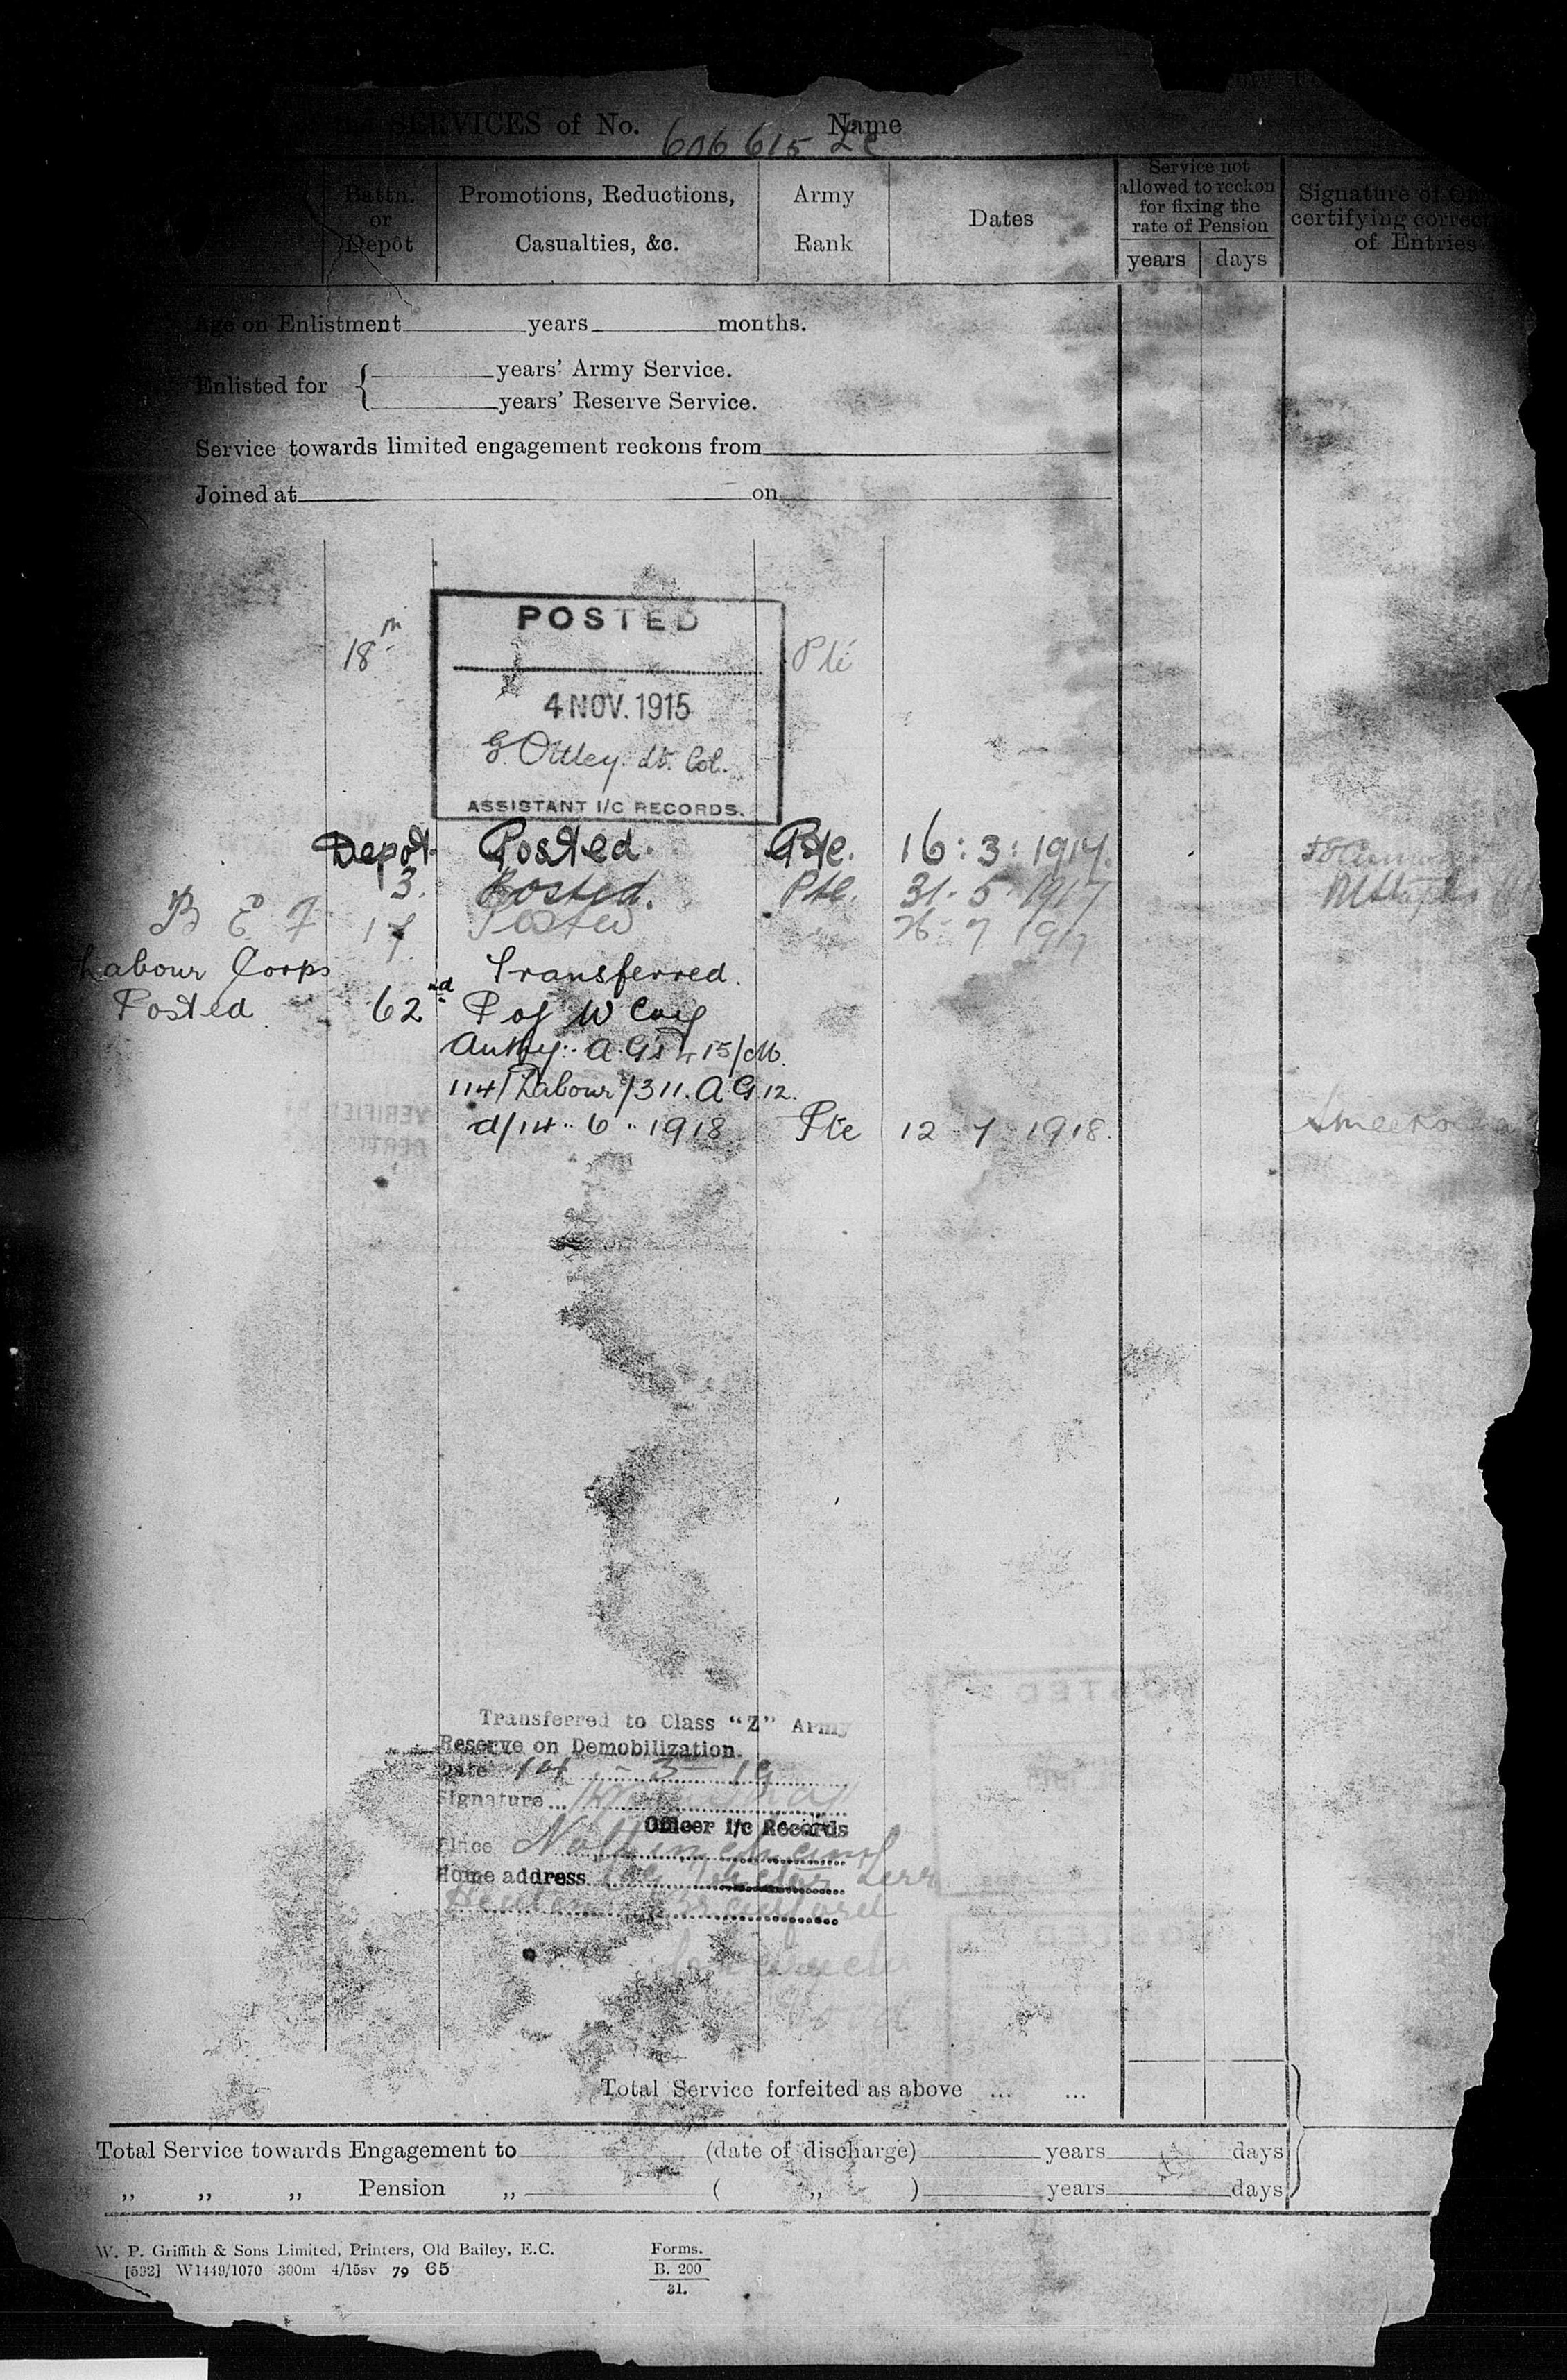 SERVICES of No. 606615 Name
Battn. or Depôt
Promotions, Reductions, Casualties, &c.
Army Rank
Dates
Service not allowed to reckon for fixing the rate of Pension
years days
Signature of certifying of Entries
Age on Enlistment years months.
Enlisted for { years' Army Service.
years' Reserve Service.
Service towards limited engagement reckons from
Joined at on
POSTED
18th Pte
4 NOV. 1915
G. Ottley. Lt. Col.
ASSISTANT I/C RECORDS.
Depôt. Posted. Pte. 16:3:1917.
3. Posted. Pte. 31.5.1917
B E F 17 Posted 26 7 1917
Labour Corps Transferred.
Posted 62nd P of W Coy
Authy:
114/Labour/311. A G 12.
d/14.. 6.. 1918 Pte 12 7 1918.
Transferred to Class "Z" Army
Reserve on Demobilization.
Date 14 - 3 - 19
Signature
Officer i/c Records
Place Nottingham
Home address Terr
Bradford
Total Service forfeited as above ... ...
Total Service towards Engagement to (date of discharge) years days
,, ,, ,, Pension ,, ( ,, ) years days
W. P. Griffith & Sons Limited, Printers, Old Bailey, E.C.
[592] W1449/1070 300m 4/15sv 79 65
Forms.
B. 200
31.